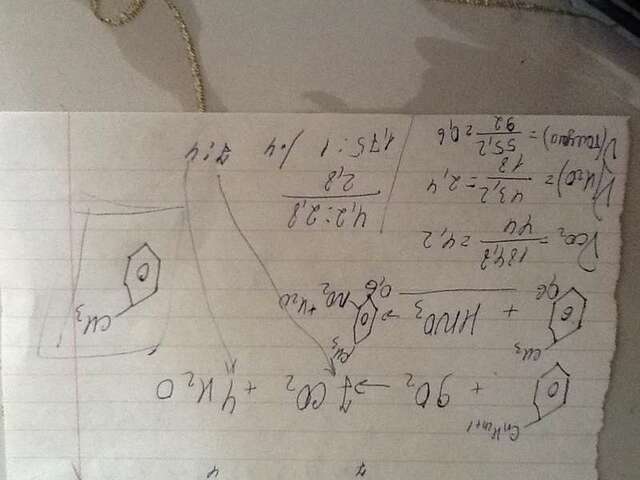 7 4
CnH2n+1
+ 9O2 → 7 CO2 + 4 H2O
CH3
0,6 + HNO3 → CH3 0,6 NO2 + H2O
CH3
νCO2 = 184,8/44 = 4,2
ν(H2O) = 43,2/18 = 2,4
ν(толуола) = 55,2/92 = 0,6
4,2 : 2,8
2,8
1,75 : 1 /·4 7 : 4